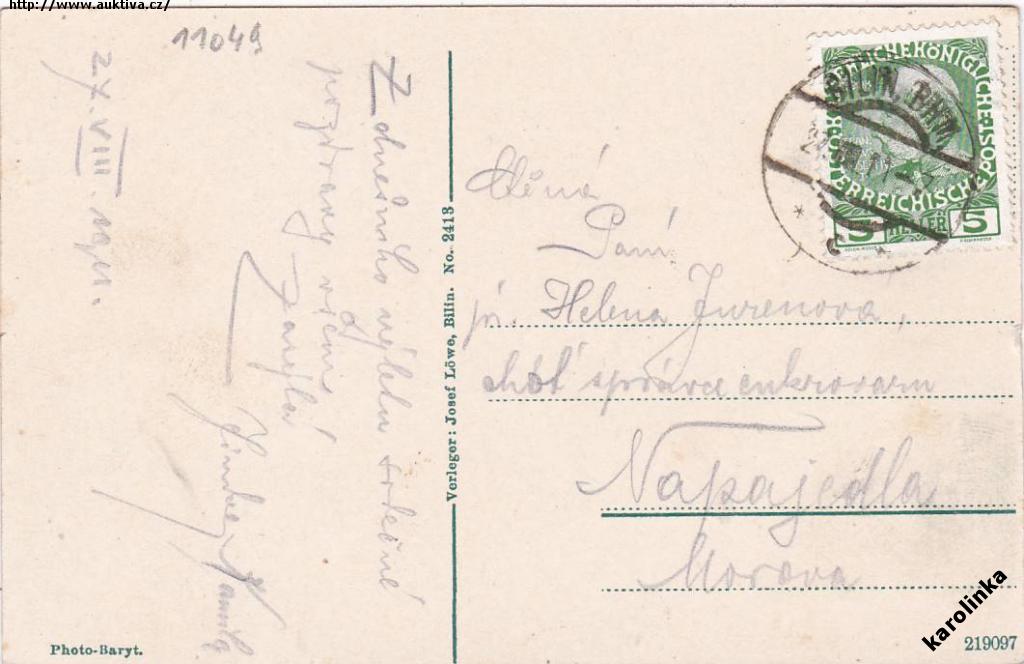 http://www.auktiva.cz/
11049
27. VIII. 1911.
Z dnešního výletu srdečné
pozdravy všem
zasýlá
Verleger: Josef Löwe, Bilin. No. 2413
KAISERLICHE KÖNIGLICHE ÖSTERREICHISCHE POST
5 HELLER 5
BILIN
11
* c *
Paní
Helena Jurenova,
choť správce cukrovaru
Napajedla
Morava
Photo-Baryt.
219097
karolinka